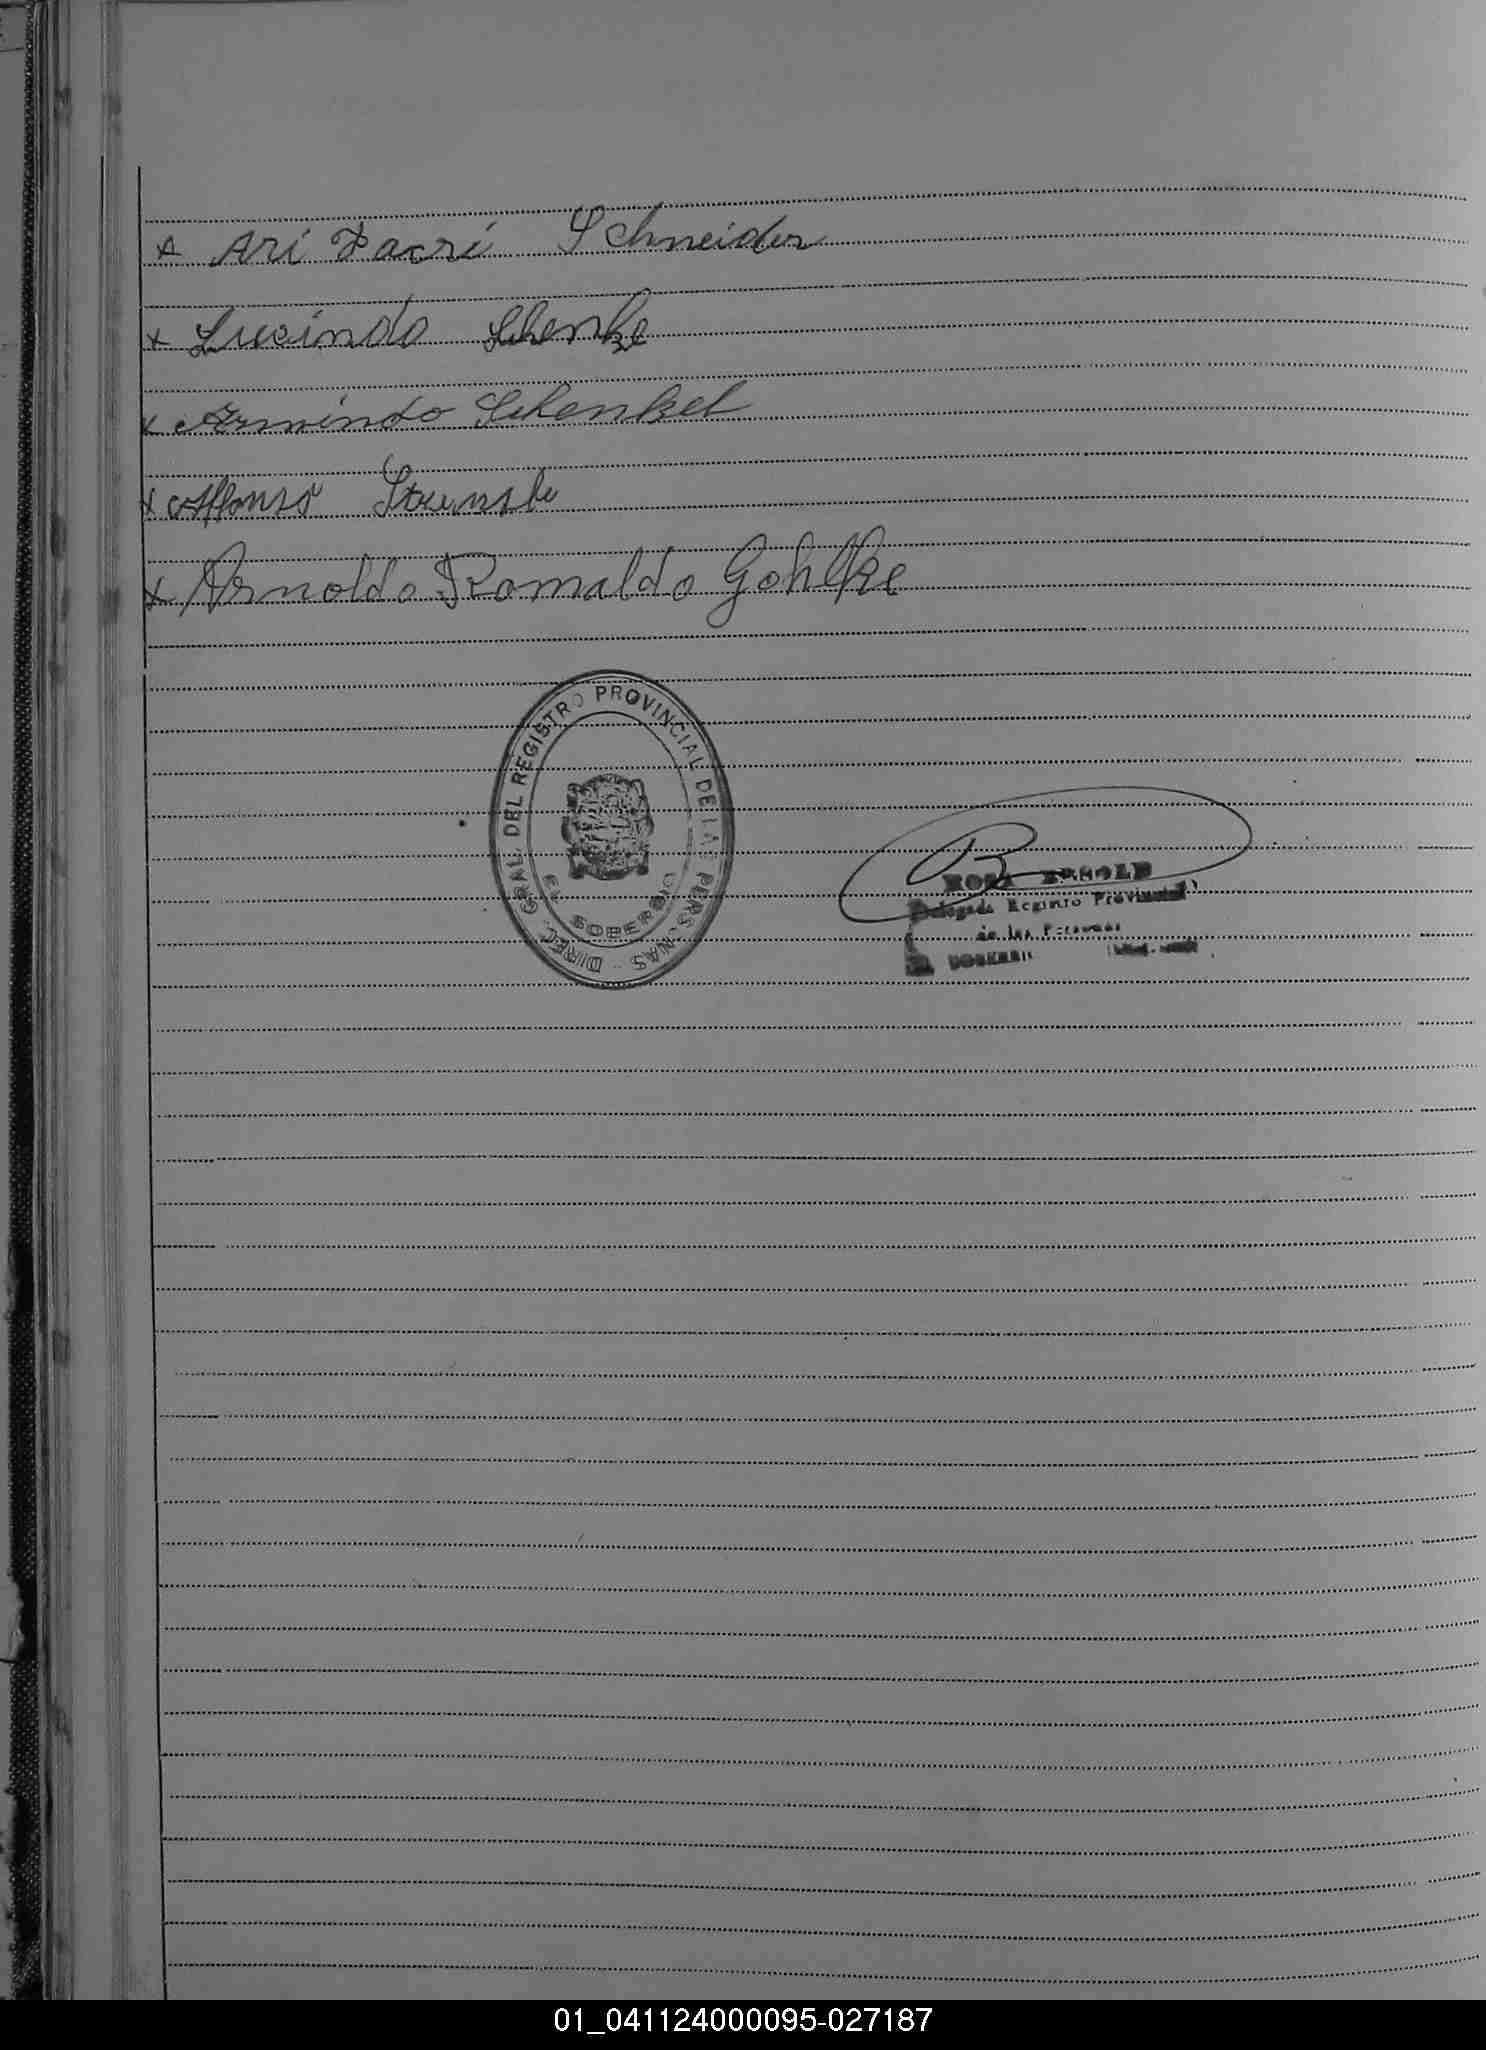 x Ari Jacri Schneider
x Lucindo Schenke
x Armindo Schenkel
x Affonso
x Arnoldo Romaldo Gohlke
DIREC. GRAL. DEL REGISTRO PROVINCIAL DE LAS PERSONAS -
EL SOBERBIO
ROSA
Delegada Registro Provincial
de las Personas
EL SOBERBIO
01_041124000095-027187